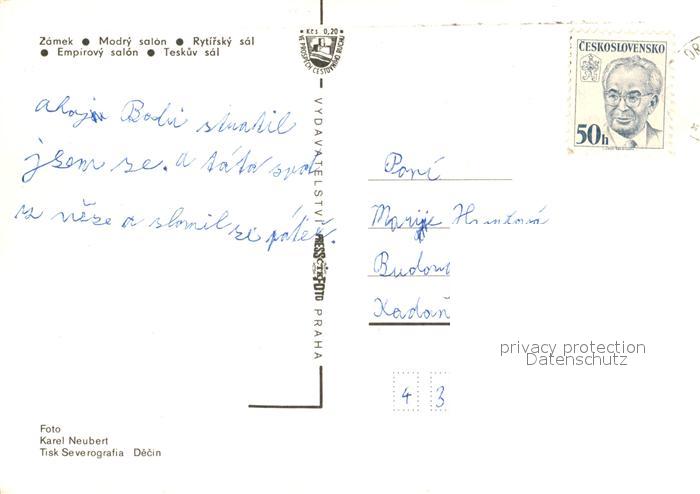 Zámek ● Modrý salón ● Rytířský sál
● Empírový salón ● Teskův sál
Kčs 0,20
VE PROSPĚCH CESTOVNÍHO RUCHU
ČESKOSLOVENSKO
50h
ahoj Babi stratil
jsem se. a táta spat
z věže a slomil si páteř.
VYDAVATELSTVÍ PRESSFOTO PRAHA
Paní
Marije
Kadaň
4 3
privacy protection
Datenschutz
Foto
Karel Neubert
Tisk Severografia Děčín